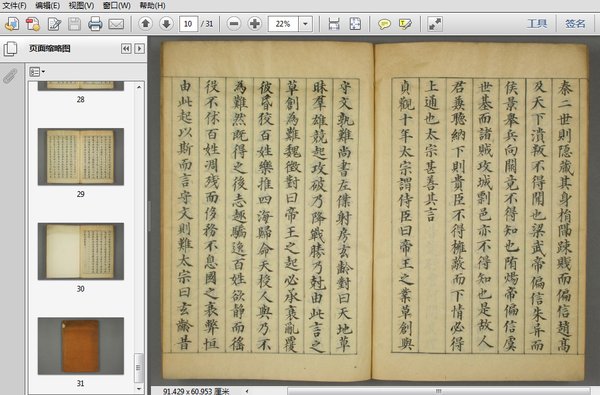 文件(F) 编辑(E) 视图(V) 窗口(W) 帮助(H)
10 / 31 22% 工具 签名
页面缩略图
28
29
30
31
秦二世則隱藏其身捐隔踈賤而偏信趙高
及天下潰叛不得聞也梁武帝偏信朱异而
侯景舉兵向闕竟不得知也隋煬帝偏信虞
世基而諸賊攻城剽邑亦不得知也是故人
君兼聽納下則貴臣不得擁蔽而下情必得
上通也太宗甚善其言
貞觀十年太宗謂侍臣曰帝王之業草創與
守文孰難尚書左僕射房玄齡對曰天地草
昧羣雄競起攻破乃降戰勝乃尅由此言之
草創為難魏徵對曰帝王之起必承衰亂覆
彼昏狡百姓樂推四海歸命天授人與乃不
為難然既得之後志趣驕逸百姓欲靜而徭
役不休百姓凋殘而侈務不息國之衰弊恒
由此起以斯而言守文則難太宗曰玄齡昔
91.429 x 60.953 厘米